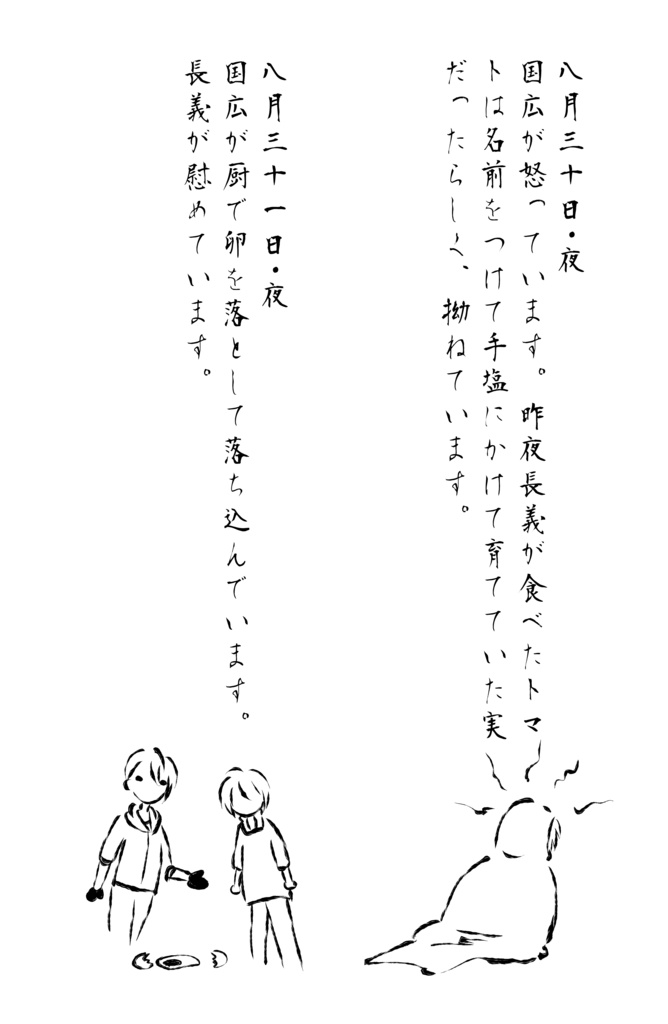 八月三十日・夜
国広が怒っています。昨夜長義が食べたトマ
トは名前をつけて手塩にかけて育てていた実
だったらしく、拗ねています。
八月三十一日・夜
国広が厨で卵を落として落ち込んでいます。
長義が慰めています。